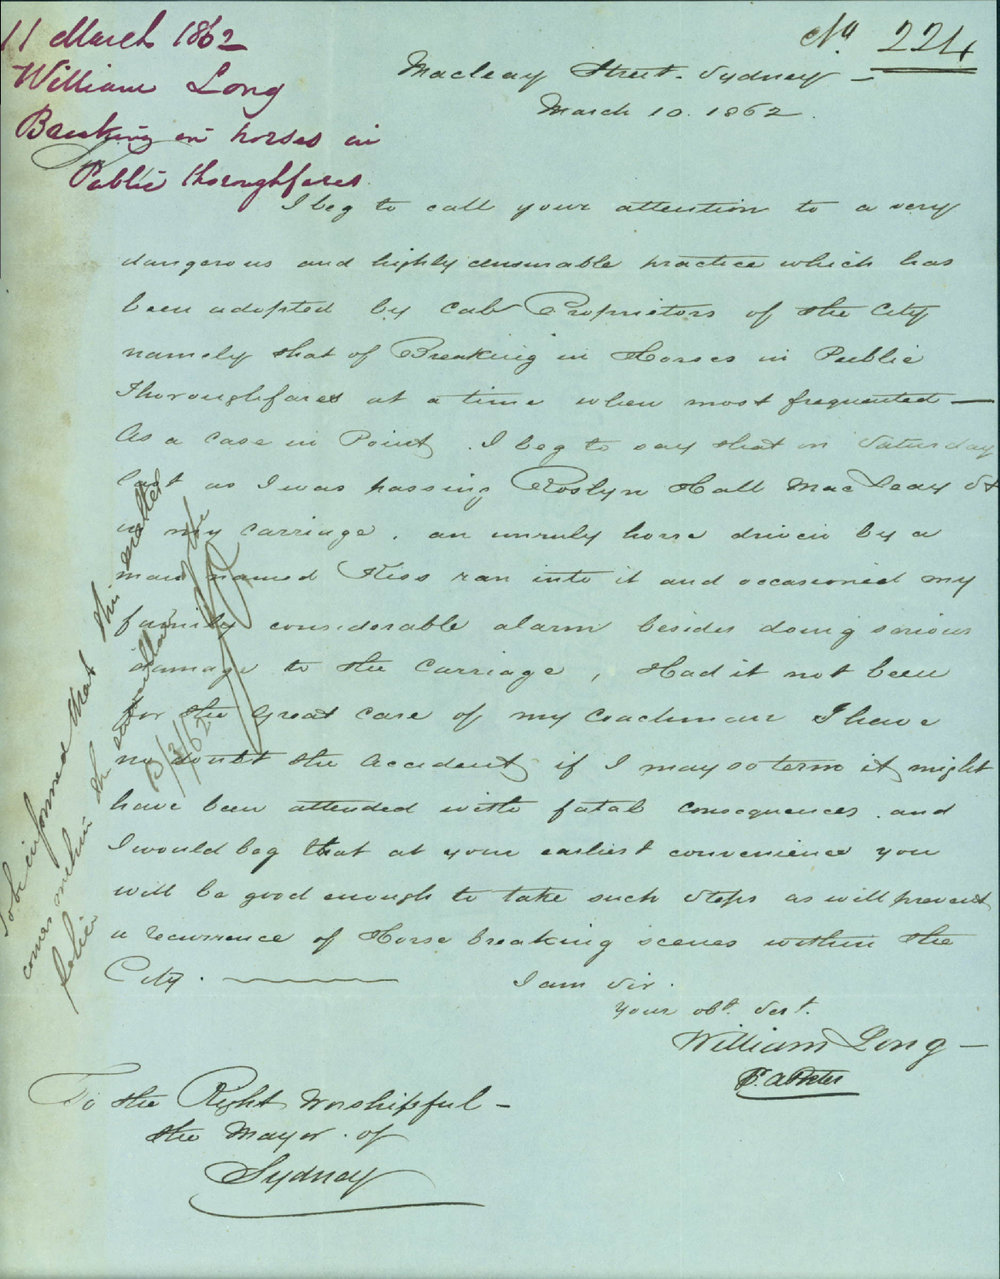 11 March 1862
William Long
Breaking in horses in
Public thoroughfares
No 224
Macleay Street. Sydney —
March 10. 1862.
I beg to call your attention to a very
dangerous and highly censurable practice which has
been adopted by Cab Proprietors of the City
namely that of Breaking in Horses in Public
Thoroughfares at a time when most frequented —
As a case in Point, I beg to say that on Saturday
last as I was passing Roslyn Hall MacLeay St
in my carriage. an unruly horse driven by a
man named Kiss ran into it and occasioned my
family considerable alarm besides doing serious
damage to the carriage, Had it not been
for the great care of my Coachman I have
no doubt the Accident, if I may so term it, might
have been attended with fatal consequences. and
I would beg that at your earliest convenience you
will be good enough to take such steps as will prevent
a recurrence of Horse breaking scenes within the
City.
I am Sir.
Your obt. Sert.
William Long —
To the Right Worshipful —
the Mayor of
Sydney
To be informed that this matter
comes within the
Police
13/3/62